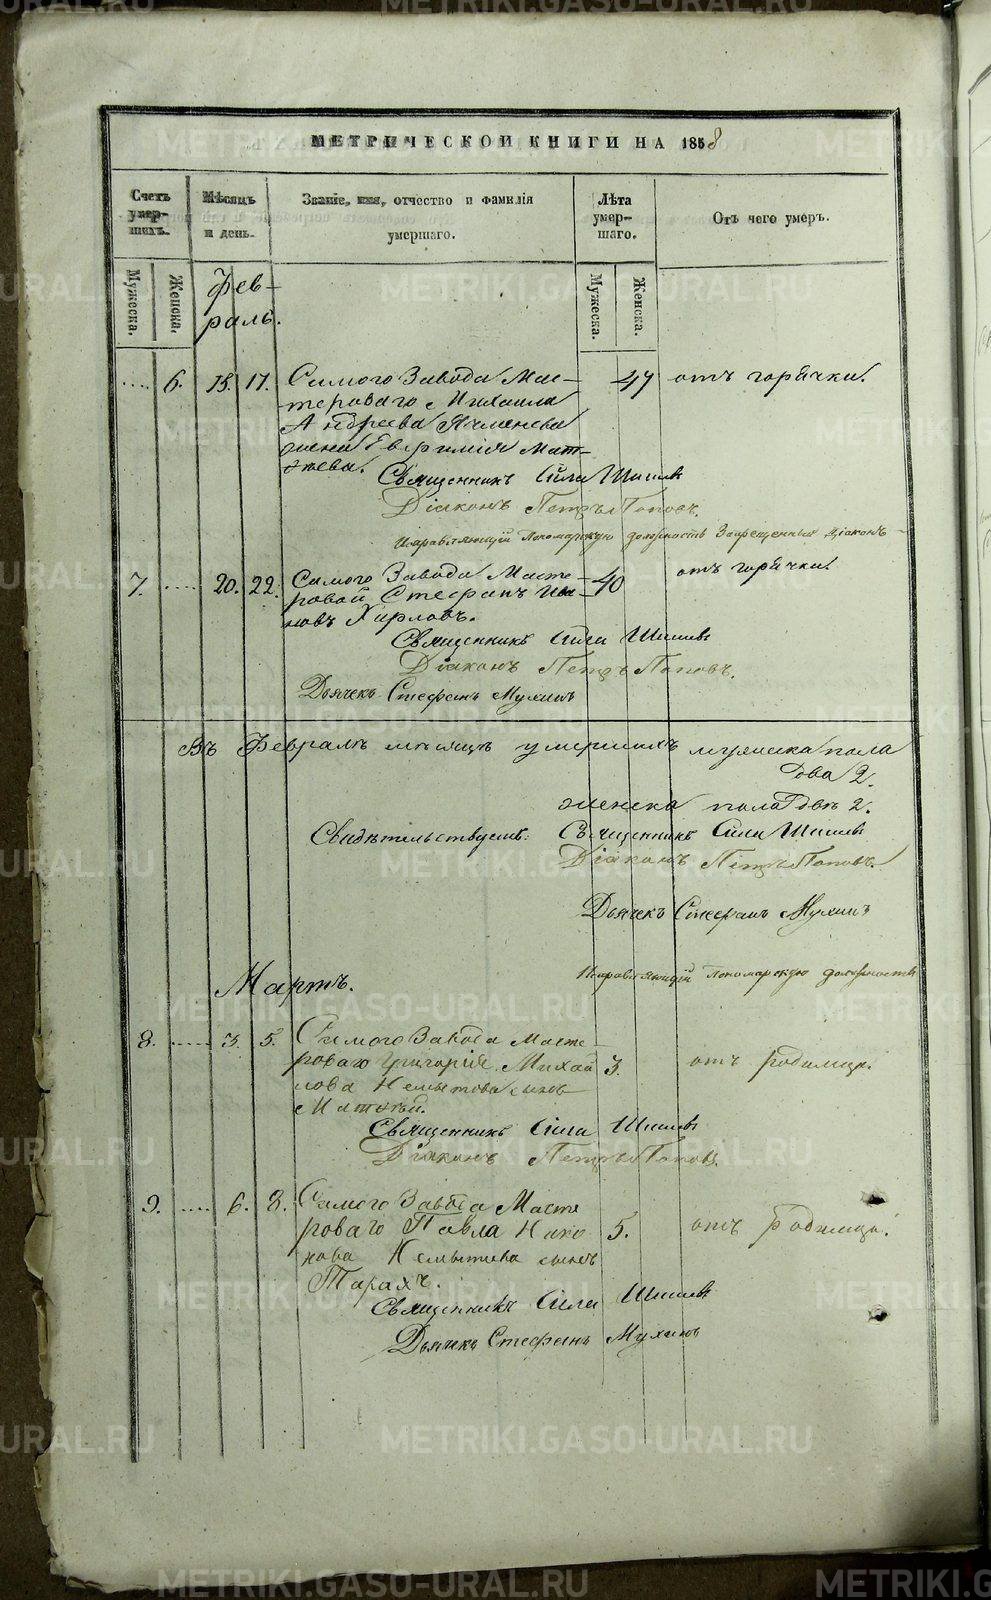 МЕТРИЧЕСКОЙ КНИГИ НА 1858
Счетъ умер-шихъ.
Мѣсяцъ и день.
Званіе, имя, отчество и фамилія умершаго.
Лѣта умер-шаго.
Отъ чего умеръ.
Мужеска.
Женска.
Мужеска.
Женска.
Фев-
раль.
6. 15. 17. Самого Завода Мас- 47 отъ горячки.
тероваго Михаила
Андреева Ячменева
жена Евфимія Мат-
ѳеева.
Священникъ Сила Шишевъ
Діаконъ Петръ Поповъ.
Исправляющій Пономарскую должность Запрещенный Діаконъ
7. 20. 22. Самого Завода Масте- 40 отъ горячки
ровой Стефанъ Ива-
новъ Харловъ.
Священникъ Сила Шишевъ
Діаконъ Петръ Поповъ.
Дьячекъ Стефанъ Мухинъ
Въ Февралѣ мѣсяцѣ умершихъ мужеска пола
два 2.
женска пола двѣ 2.
Свидѣтельствуемъ: Священникъ Сила Шишевъ
Діаконъ Петръ Поповъ.
Дьячекъ Стефанъ Мухинъ
Исправляющій Пономарскую должность
Мартъ.
8. 3. 5. Самого Завода Масте-
роваго Григорія Михай 3. отъ родимца.
лова Немытова сынъ
Матѳей.
Священникъ Сила Шишевъ
Діаконъ Петръ Поповъ.
9. 6. 8. Самого Завода Масте
роваго Павла Нико 5. отъ родимца.
нова Немытова сынъ
Тарахъ.
Священникъ Сила Шишевъ
Дьячекъ Стефанъ Мухинъ
METRIKI.GASO-URAL.RU